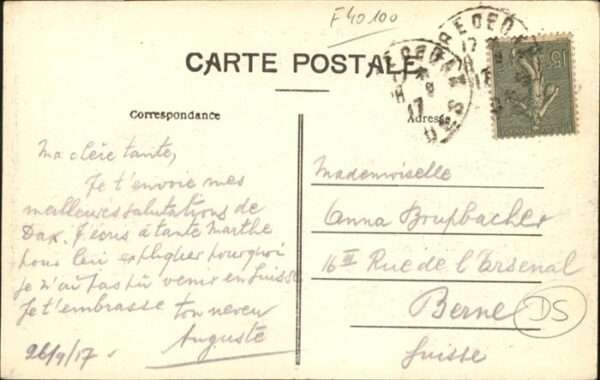 F40100
CARTE POSTALE
Correspondance
Adresse
Ma chère tante,
Je t'envoie mes
meilleures salutations de
Dax. J'écris à tante Marthe
pour lui expliquer pourquoi
je n'ai pas pu venir en Suisse
Je t'embrasse
ton neveu
Auguste
26/9/17
Mademoiselle
Anna Brupbacher
16 III Rue de l'Arsenal
Berne
Suisse
DS
15
17